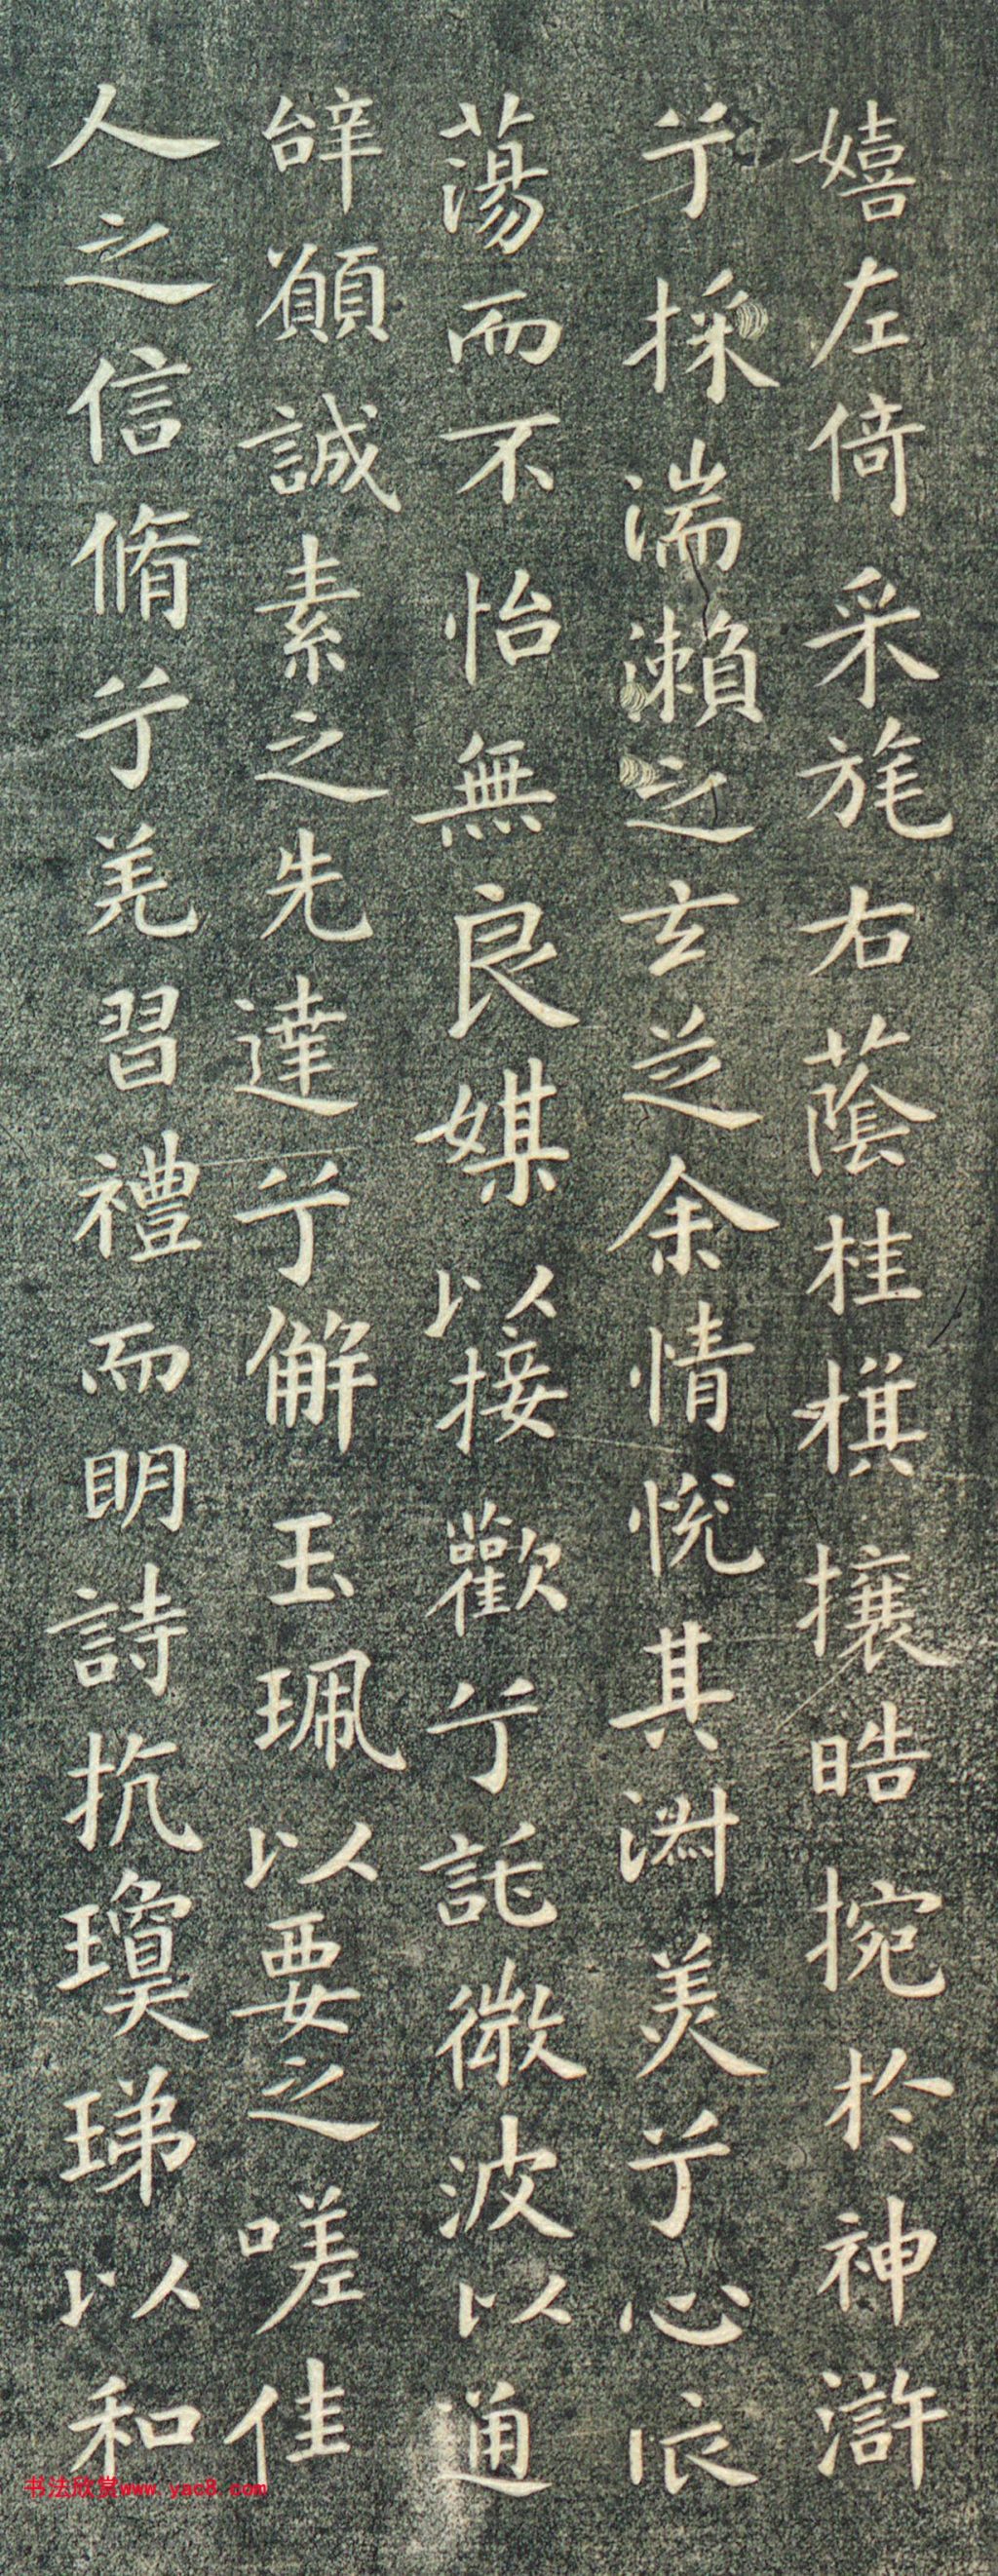 嬉左倚采旄右蔭桂棋攘皓捥於神滸
兮採湍瀨之玄芝余情悅其淋美兮心依
蕩而不怡無良媒以接歡兮託微波以通
辝願誠素之先達兮解玉珮以要之嗟佳
人之信脩兮羌習禮而明詩抗瓊珶以和
书法欣赏www.yac8.com